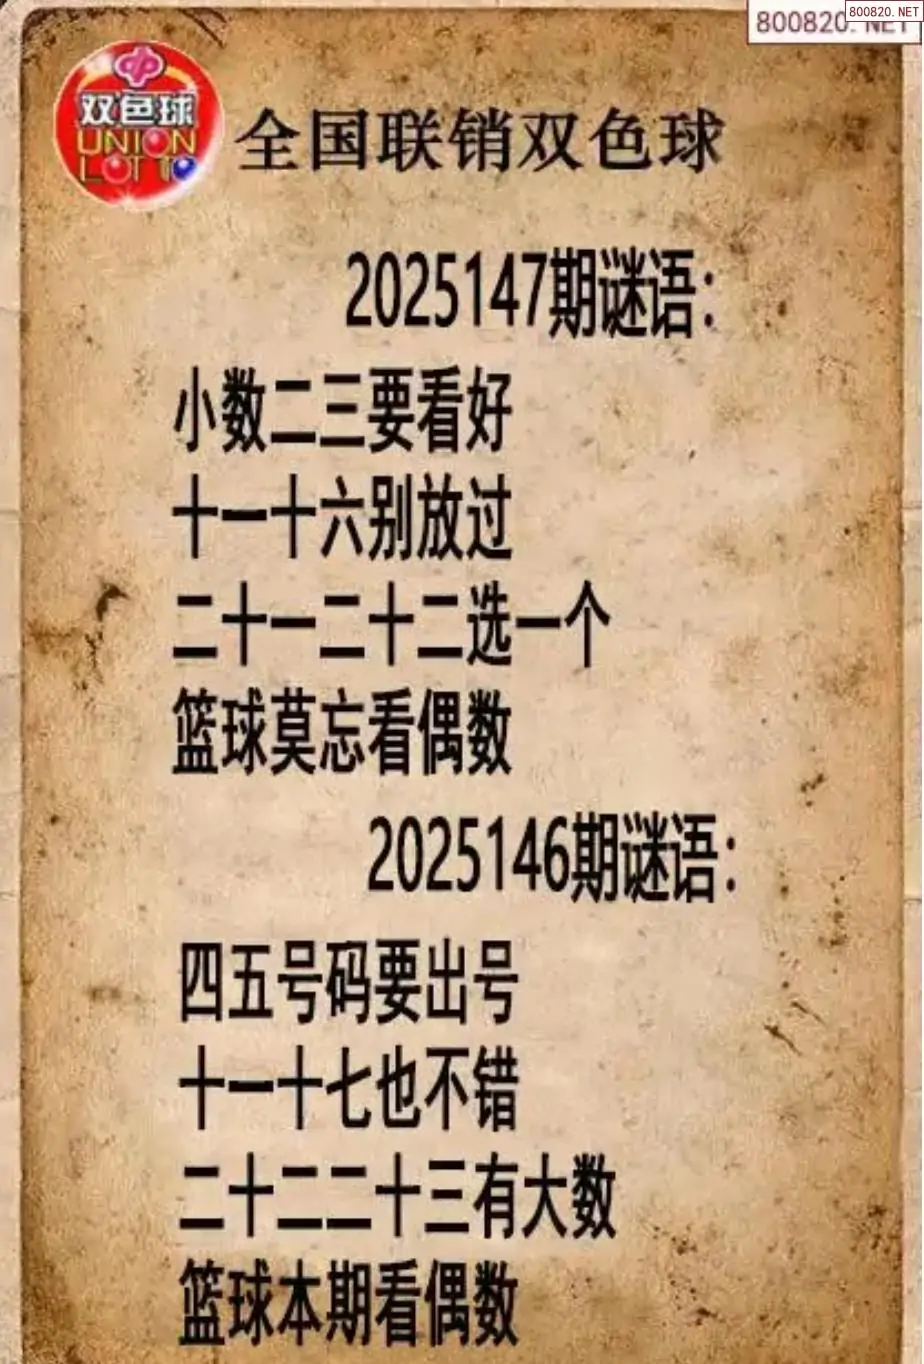 800820. NET
800820. NET
中
双色球
UNION
LOTTO
全国联销双色球
2025147期谜语：
小数二三要看好
十一十六别放过
二十一二十二选一个
篮球莫忘看偶数
2025146期谜语：
四五号码要出号
十一十七也不错
二十二二十三有大数
篮球本期看偶数